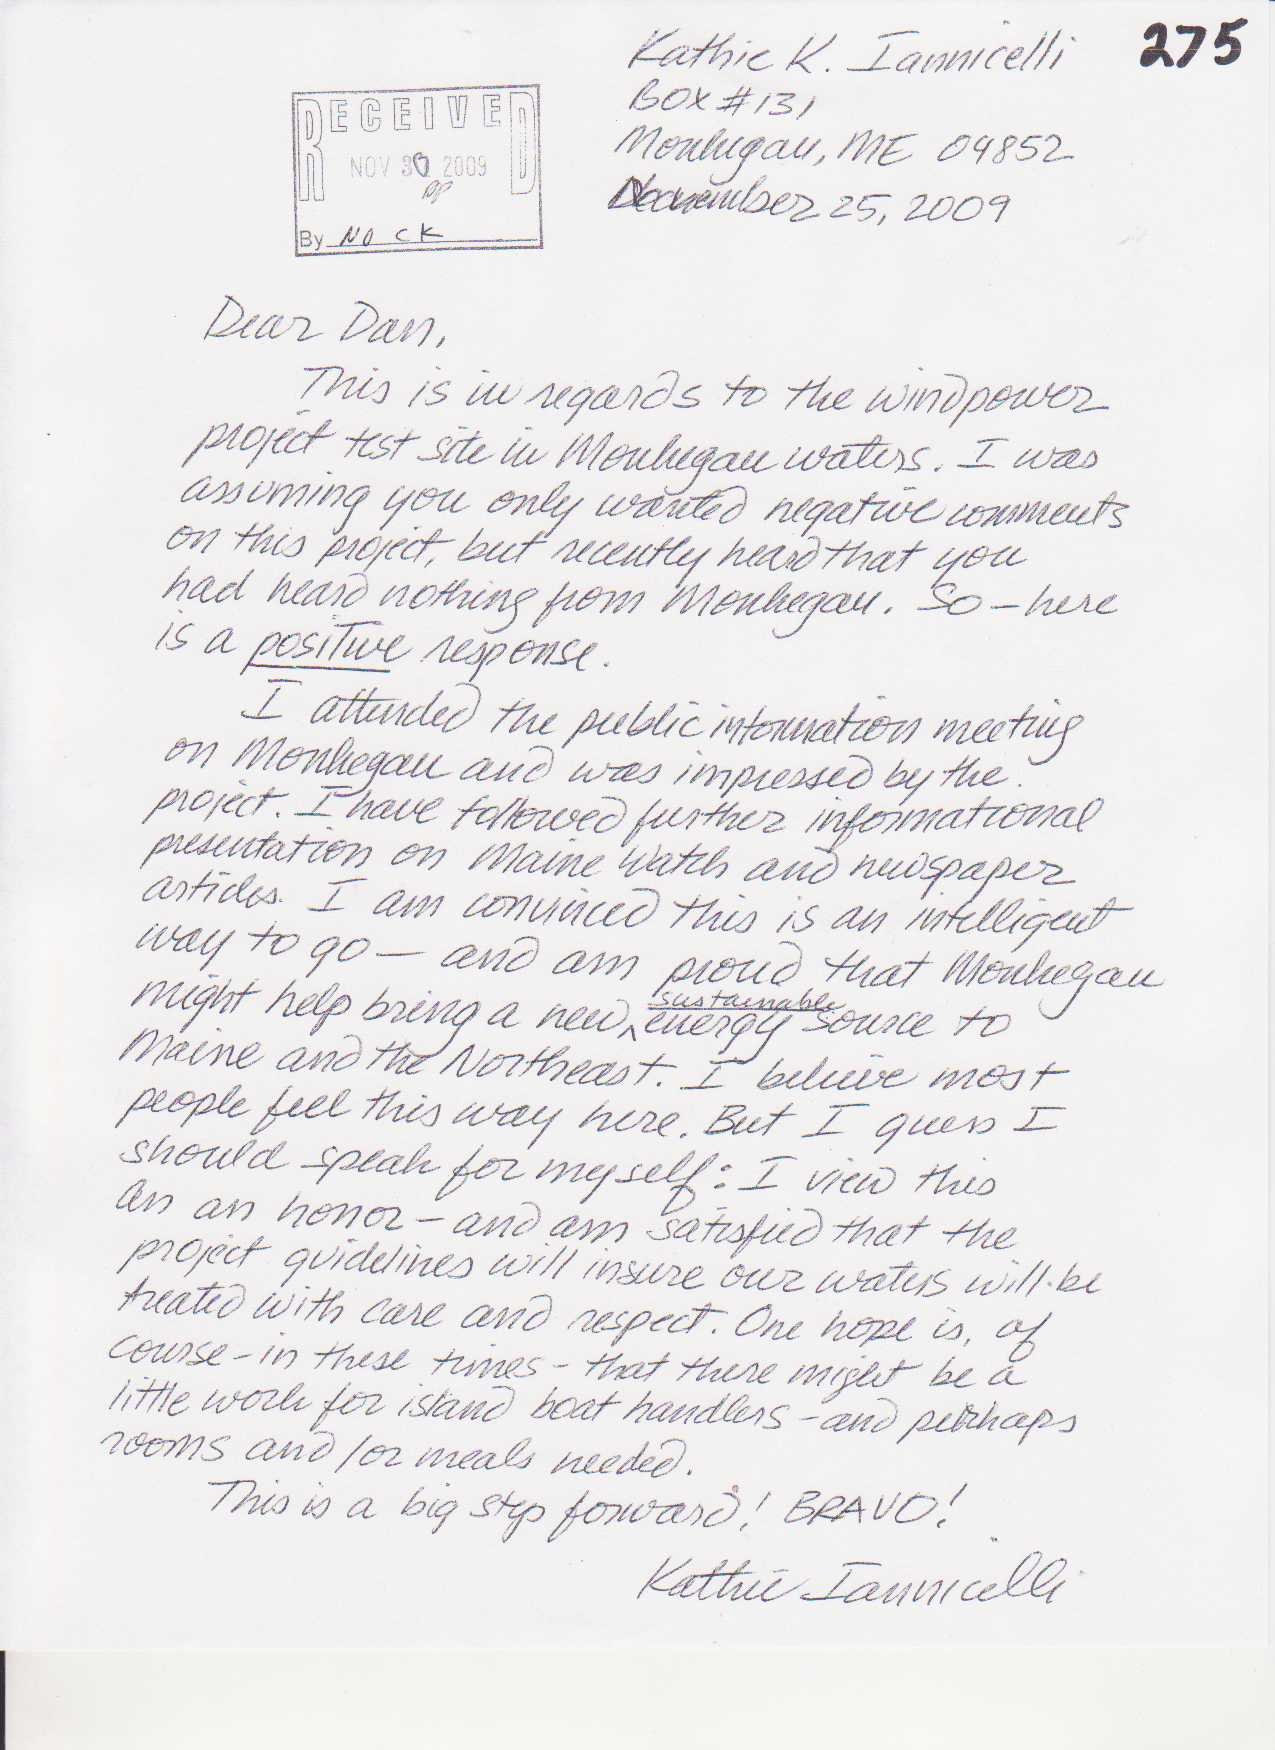 275
Kathie K. Iannicelli
BOX #131
Monhegan, ME 04852
November 25, 2009
RECEIVED
NOV 30 2009
By NO CK
Dear Dan,
This is in regards to the windpower
project test site in Monhegan waters. I was
assuming you only wanted negative comments
on this project, but recently heard that you
had heard nothing from Monhegan. So – here
is a positive response.
I attended the public information meeting
on Monhegan and was impressed by the
project. I have followed further informational
presentation on Maine Watch and newspaper
articles. I am convinced this is an intelligent
way to go – and am proud that Monhegan
might help bring a new sustainable energy source to
Maine and the Northeast. I believe most
people feel this way here. But I guess I
should speak for myself: I view this
as an honor – and am satisfied that the
project guidelines will insure our waters will be
treated with care and respect. One hope is, of
course – in these times – that there might be a
little work for island boat handlers – and perhaps
rooms and/or meals needed.
This is a big step forward! BRAVO!
Kathie Iannicelli